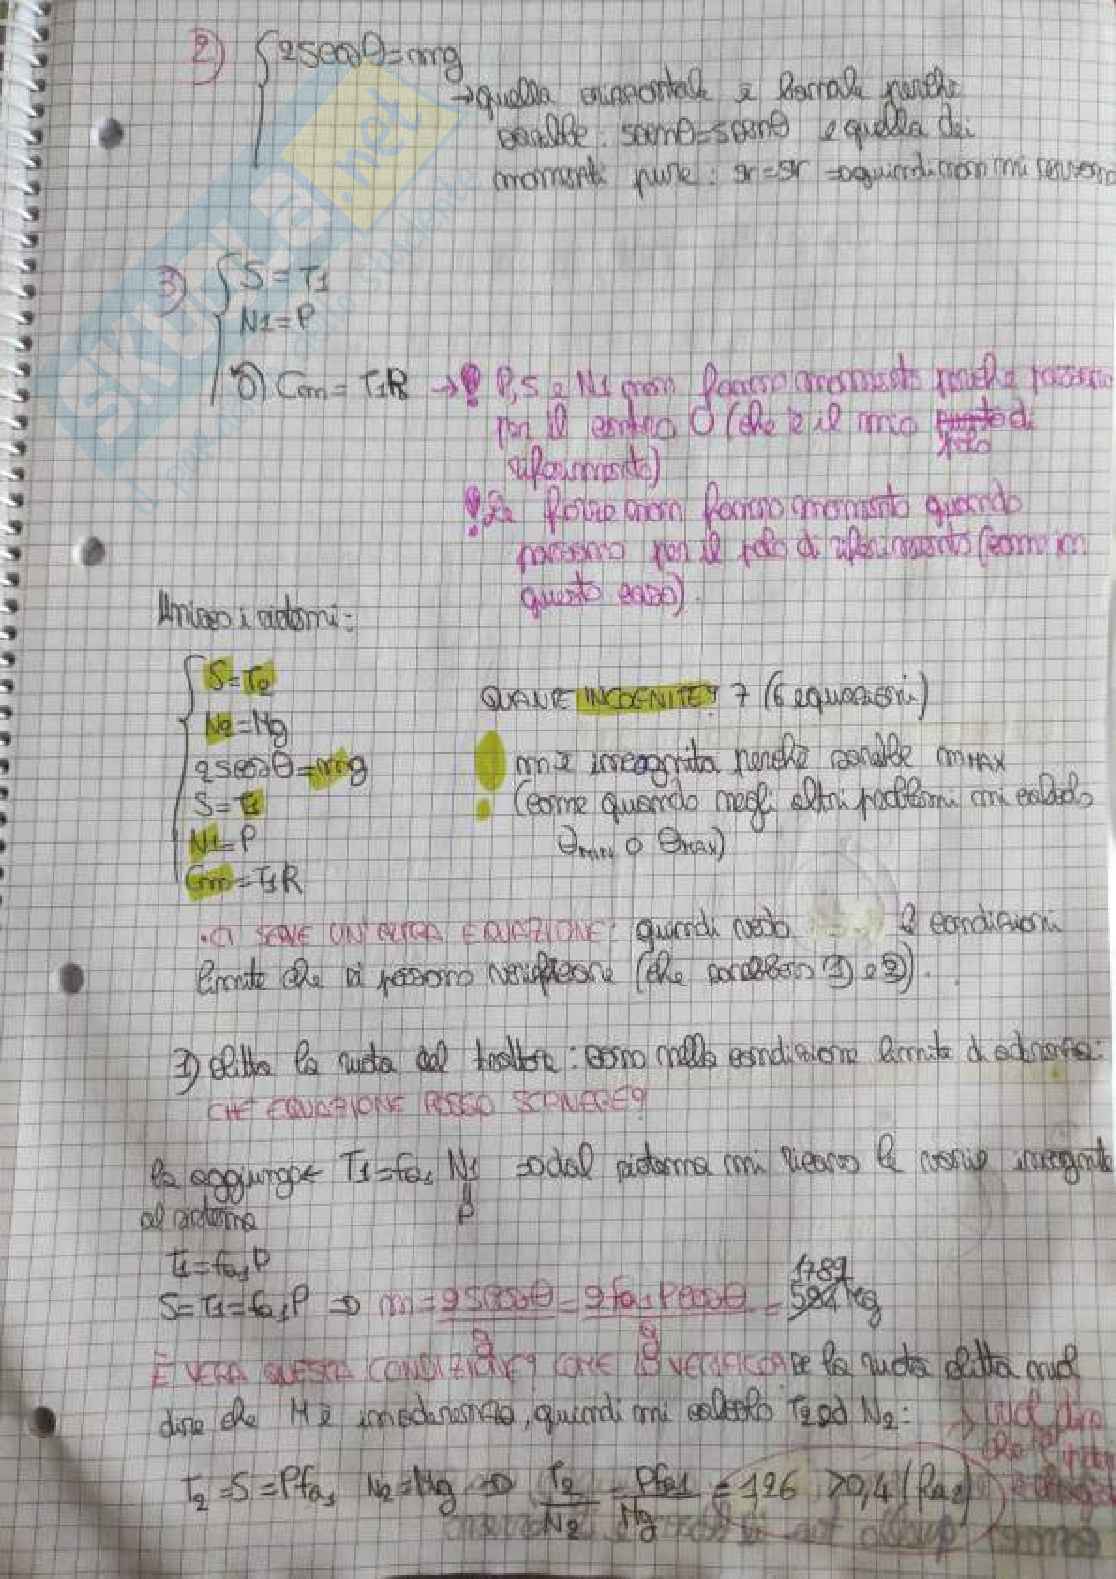 2) { 2Scosθ=mg
→ quella orizzontale è banale perché
sarebbe: Ssenθ=Ssenθ e quella dei
momenti pure: Sr=Sr ⇒ quindi non mi servono
3) { S=T1
N1=P
O) Cm=T1R → ! P, S e N1 non fanno momento perché passano
per il centro O (che è il mio punto di
polo
riferimento)
! Le forze non fanno momento quando
passano per il polo di riferimento (come in
questo caso).
Unisco i sistemi:
{ S=T2
N2=Mg
2Scosθ=mg
S=T1
N1=P
Cm=T1R
QUANTE INCOGNITE? 7 (6 equazioni)
! m è incognita perché sarebbe mMAX
(come quando negli altri problemi mi calcolo
θmin o θMAX)
• CI SERVE UN'ALTRA EQUAZIONE: quindi vedo 2 condizioni
limite che si possono verificare (che sarebbero 1) e 2)).
1) slitta la ruota del trattore: sono nella condizione limite di aderenza:
CHE EQUAZIONE POSSO SCRIVERE?
la aggiungo T1=fa1 N1 ⇒ dal sistema mi ricavo le varie incognite
al sistema P
T1=fa1P
S=T1=fa1P ⇒ m = 2Scosθ/g = 2fa1Pcosθ/g = 1789 kg
È VERA QUESTA CONDIZIONE? COME LO VERIFICO? Se la ruota slitta vuol
dire che M è in aderenza, quindi mi calcolo T2 ed N2: → vuol dire
che
T2=S=Pfa1 N2=Mg ⇒ T2/N2 = Pfa1/Mg = 1,26 >0,4 (fa2)